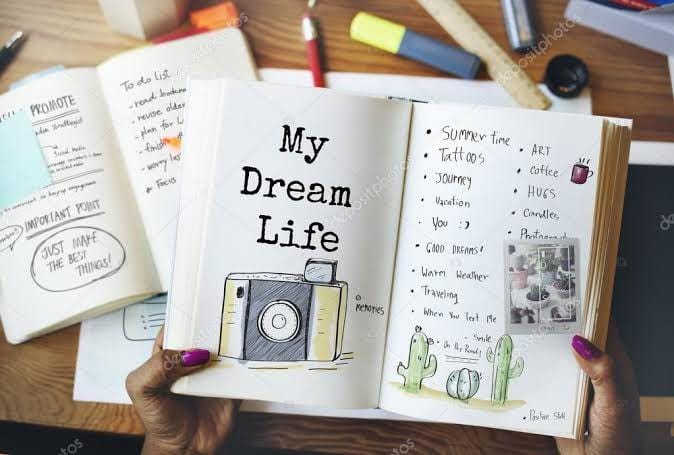 PROMOTE
Social Media
IMPORTANT POINT
JUST MAKE
THE BEST
THINGS!
To do list
- read
- reuse older
- plan for
- finish
- worry less
- Focus
My
Dream
Life
MEMORIES
• Summer time
• Tattoos
• Journey
• Vacation
• You :)
• GOOD DREAMS!
• Warm Weather
• Traveling
• When You Text Me
• Smile
• On the Road!
• ART
• Coffee
• HUGS
• Candles
• Positive Stuff
depositphotos